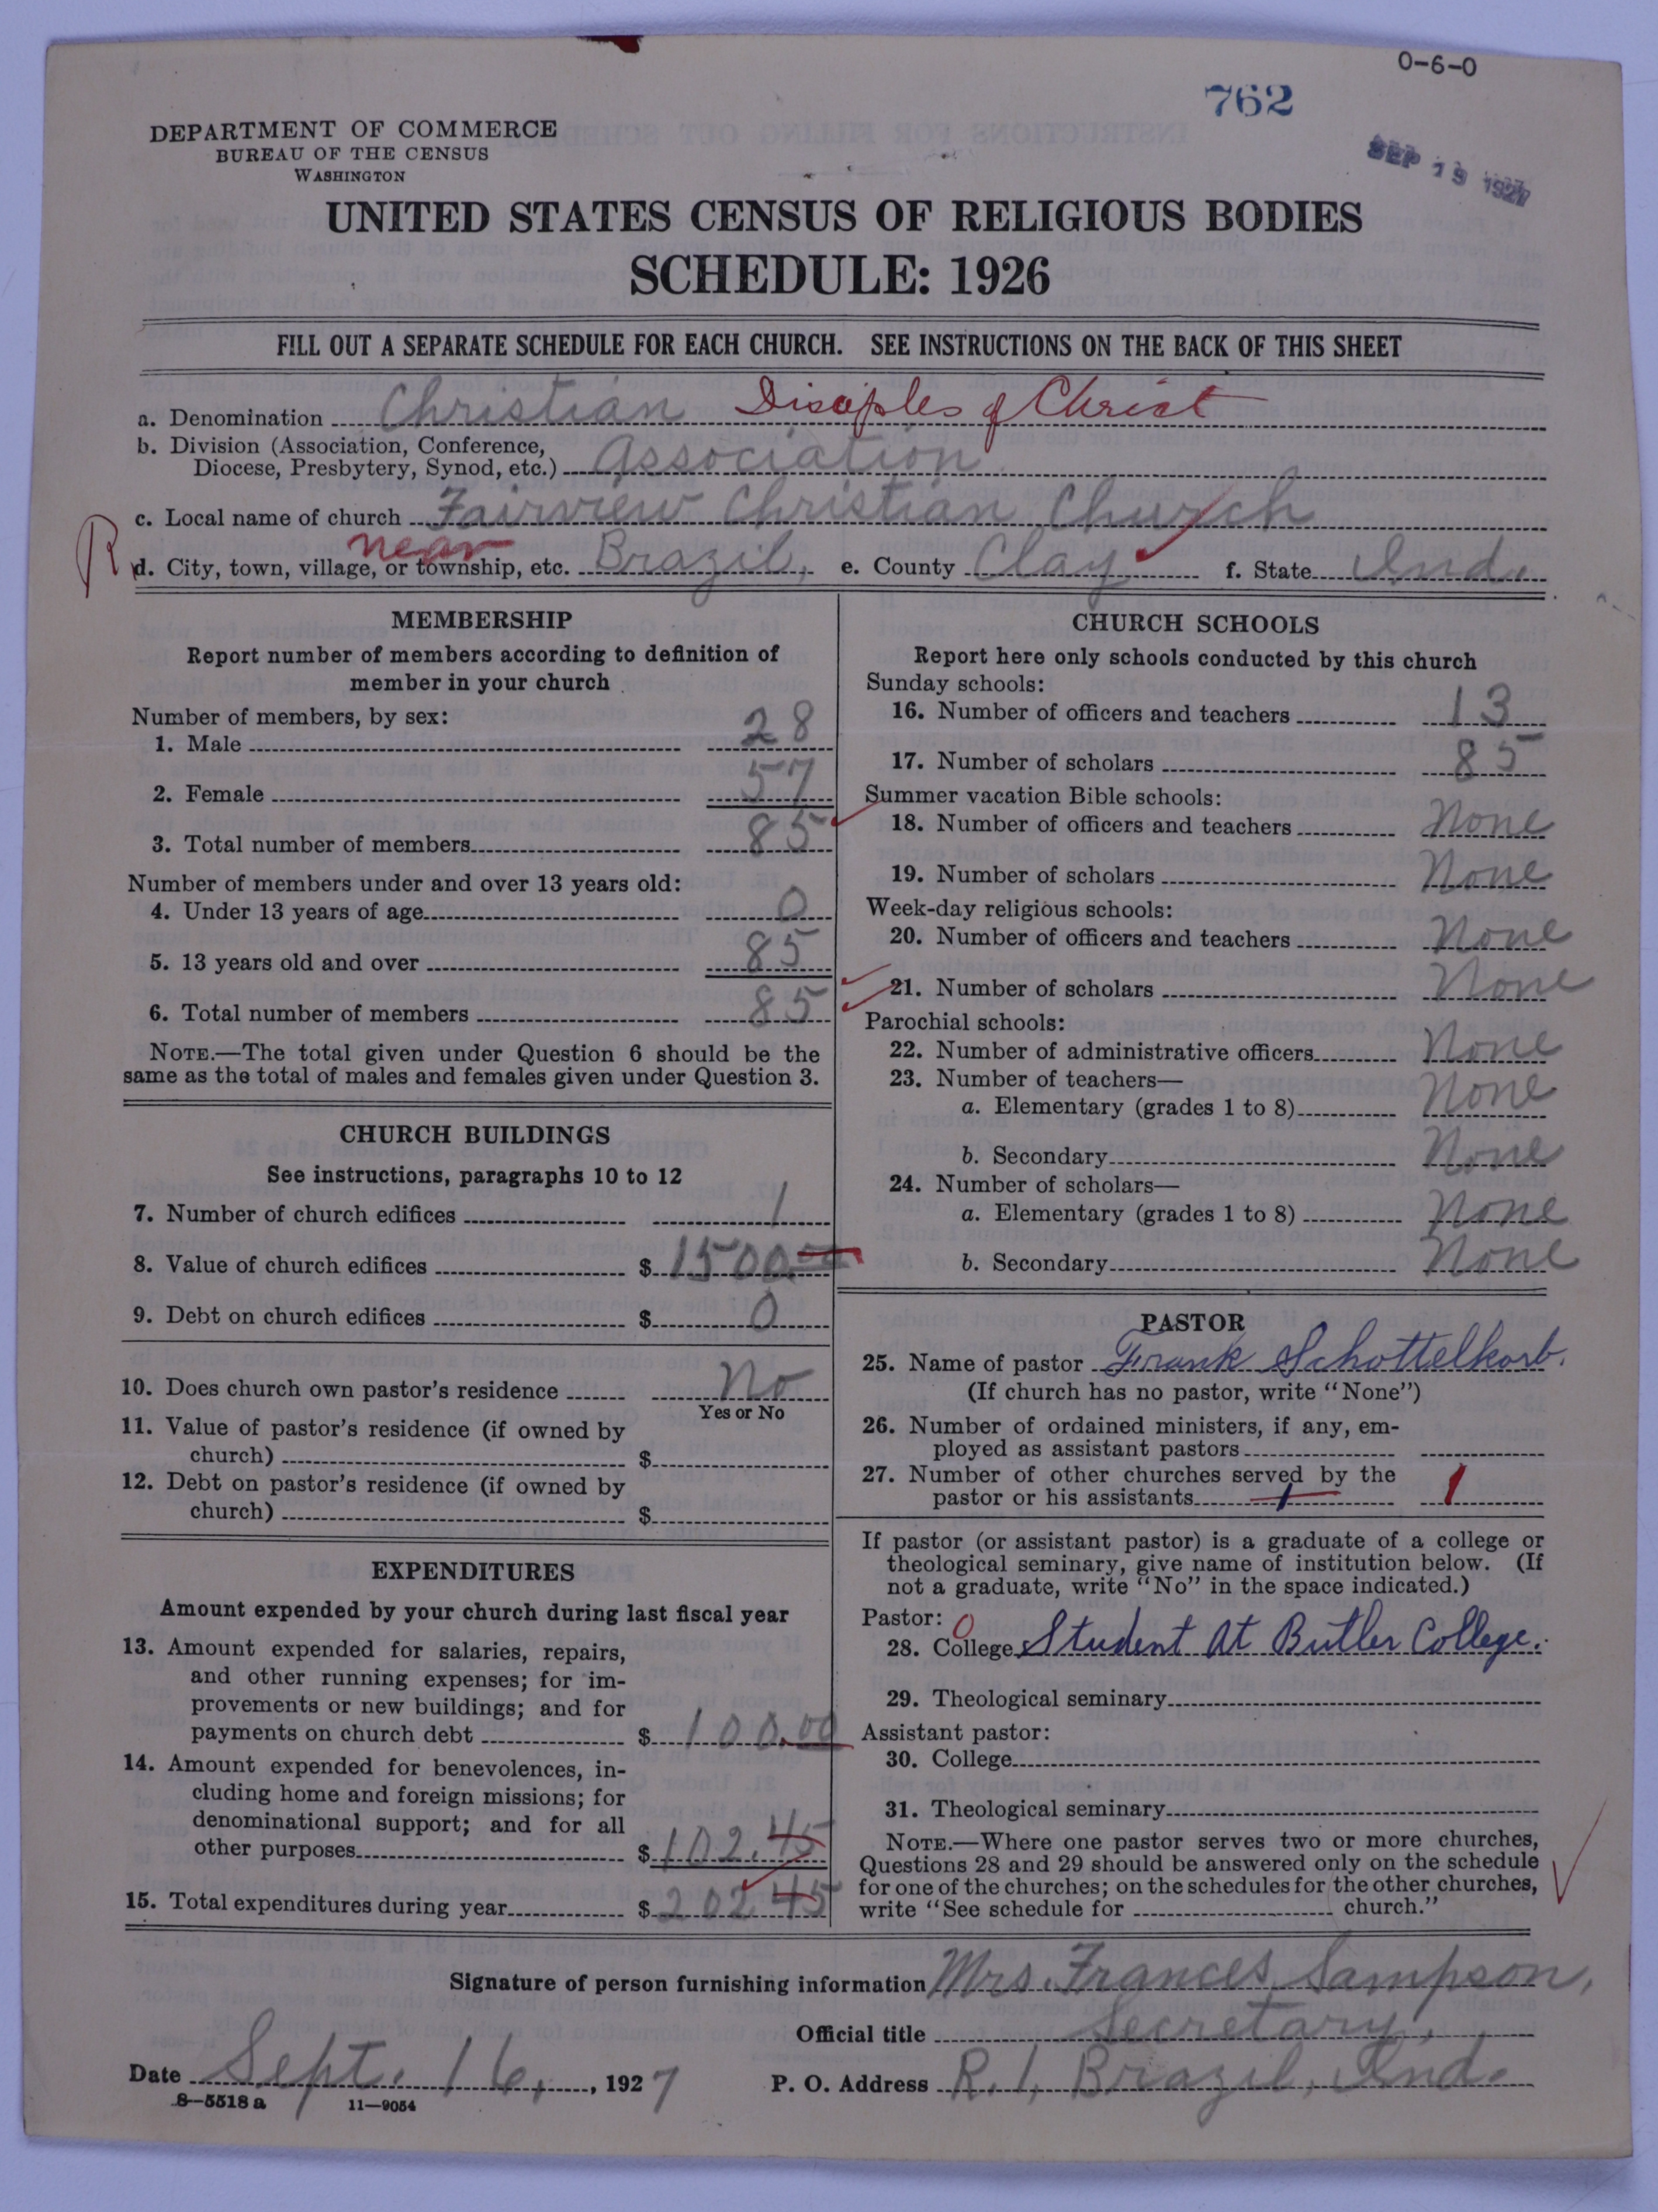 0-6-0
762
SEP 19 1927
DEPARTMENT OF COMMERCE
BUREAU OF THE CENSUS
WASHINGTON
UNITED STATES CENSUS OF RELIGIOUS BODIES
SCHEDULE: 1926
FILL OUT A SEPARATE SCHEDULE FOR EACH CHURCH. SEE INSTRUCTIONS ON THE BACK OF THIS SHEET
a. Denomination Christian Disciples of Christ
b. Division (Association, Conference,
Diocese, Presbytery, Synod, etc.) Association
c. Local name of church Fairview Christian Church
R near
d. City, town, village, or township, etc. Brazil, e. County Clay f. State Ind.
MEMBERSHIP
Report number of members according to definition of
member in your church
Number of members, by sex:
1. Male 28
2. Female 57
3. Total number of members 85
Number of members under and over 13 years old:
4. Under 13 years of age 0
5. 13 years old and over 85
6. Total number of members 85
NOTE.—The total given under Question 6 should be the
same as the total of males and females given under Question 3.
CHURCH BUILDINGS
See instructions, paragraphs 10 to 12
7. Number of church edifices 1
8. Value of church edifices $1500.00
9. Debt on church edifices $0
10. Does church own pastor's residence No
Yes or No
11. Value of pastor's residence (if owned by
church) $
12. Debt on pastor's residence (if owned by
church) $
EXPENDITURES
Amount expended by your church during last fiscal year
13. Amount expended for salaries, repairs,
and other running expenses; for im-
provements or new buildings; and for
payments on church debt $100.00
14. Amount expended for benevolences, in-
cluding home and foreign missions; for
denominational support; and for all
other purposes $102.45
15. Total expenditures during year $202.45
CHURCH SCHOOLS
Report here only schools conducted by this church
Sunday schools:
16. Number of officers and teachers 13
17. Number of scholars 85
Summer vacation Bible schools:
18. Number of officers and teachers None
19. Number of scholars None
Week-day religious schools:
20. Number of officers and teachers None
21. Number of scholars None
Parochial schools:
22. Number of administrative officers None
23. Number of teachers—
a. Elementary (grades 1 to 8) None
b. Secondary None
24. Number of scholars—
a. Elementary (grades 1 to 8) None
b. Secondary None
PASTOR
25. Name of pastor Frank Schottelkorb.
(If church has no pastor, write "None")
26. Number of ordained ministers, if any, em-
ployed as assistant pastors
27. Number of other churches served by the
pastor or his assistants 1 1
If pastor (or assistant pastor) is a graduate of a college or
theological seminary, give name of institution below. (If
not a graduate, write "No" in the space indicated.)
Pastor: 0
28. College Student at Butler College.
29. Theological seminary
Assistant pastor:
30. College
31. Theological seminary
NOTE.—Where one pastor serves two or more churches,
Questions 28 and 29 should be answered only on the schedule
for one of the churches; on the schedules for the other churches,
write "See schedule for church."
Signature of person furnishing information Mrs. Frances Sampson,
Official title Secretary,
Date Sept. 16, 1927 P. O. Address R. 1, Brazil, Ind.
8-5518 a 11-9054